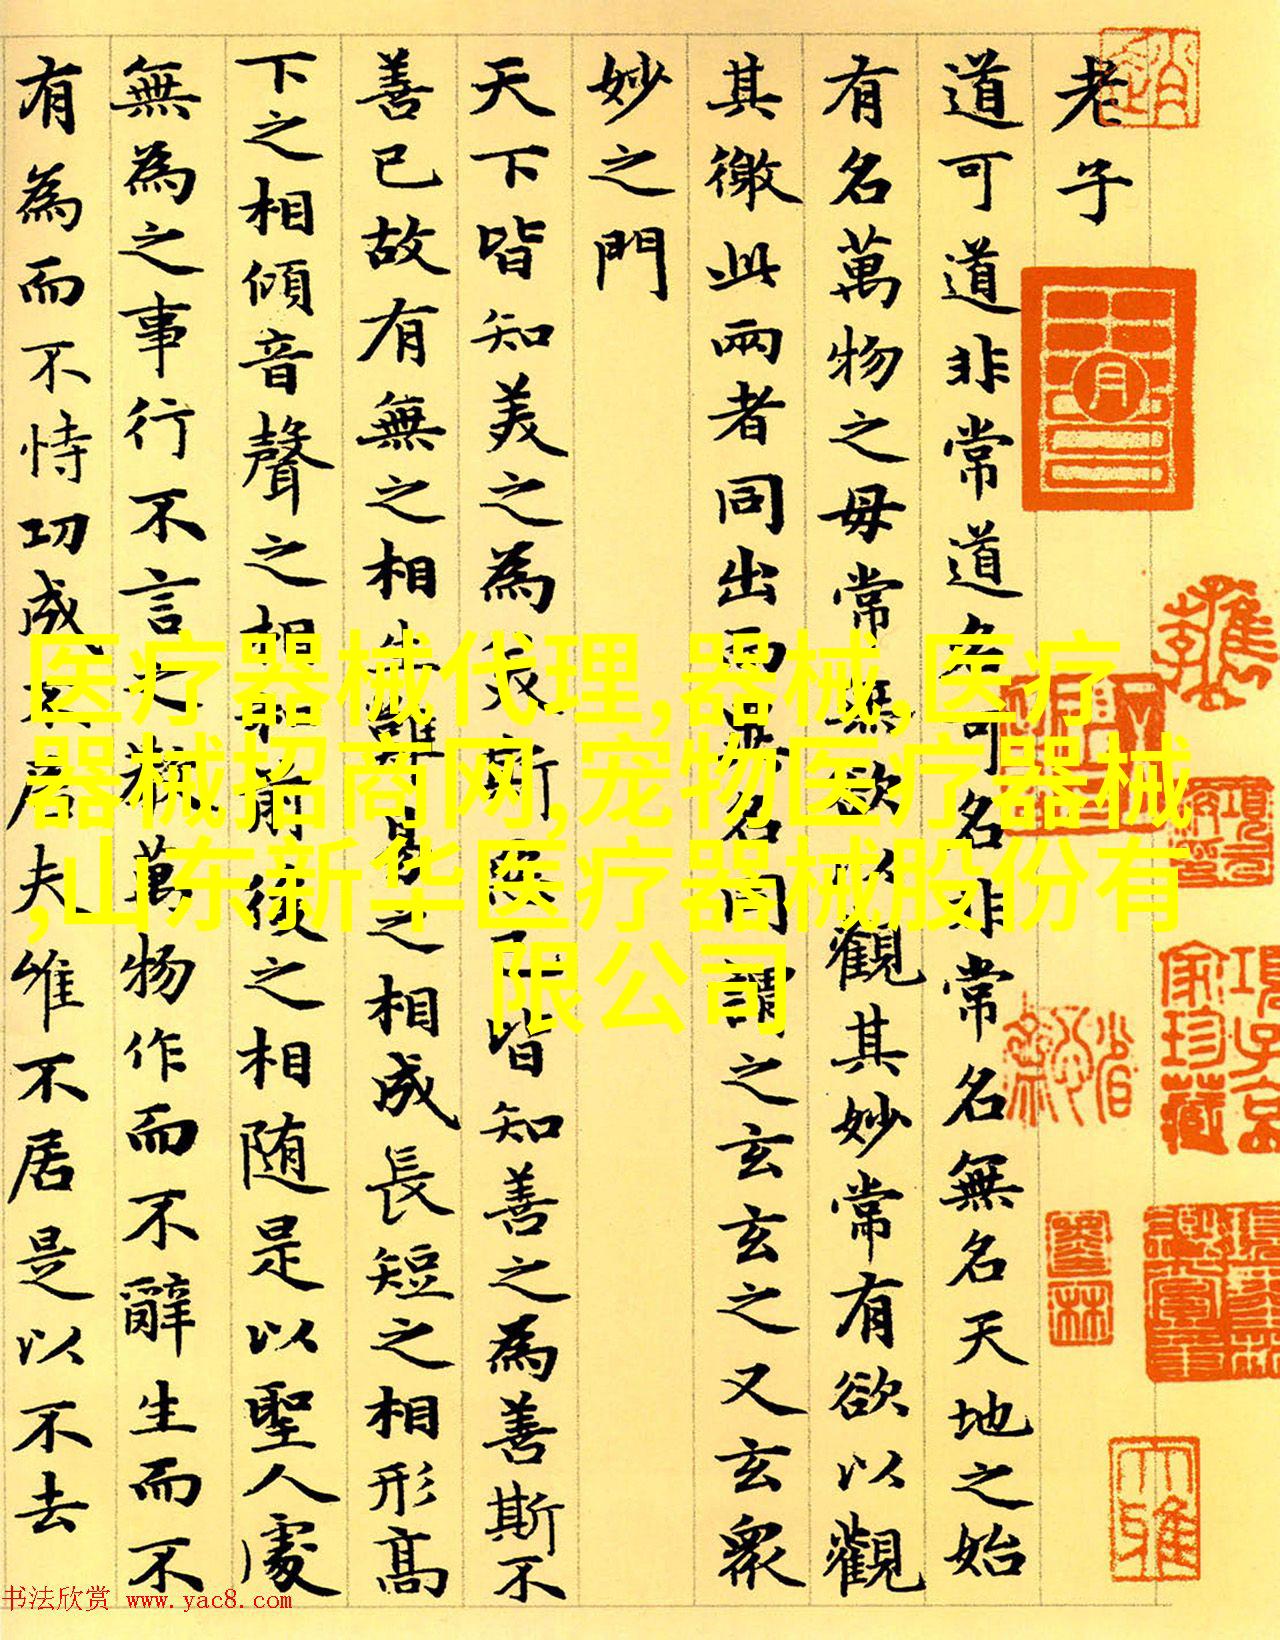 老子
道可道非常道名可名非常名無名天地之始
有名萬物之母常無欲以觀其妙常有欲以觀
其徼此兩者同出而異名同謂之玄玄之又玄衆
妙之門
天下皆知美之為美斯惡已皆知善之為善斯不
善已故有無之相生難易之相成長短之相形高
下之相傾音聲之相和前後之相随是以聖人處
無為之事行不言之教萬物作而不辭生而不
有為而不恃功成居夫唯不居是以不去
項子京
家珍藏
医疗器械代理,器械,医疗
器械招商网,宠物医疗器械
,山东新华医疗器械股份有
限公司
书法欣赏 www.yac8.com